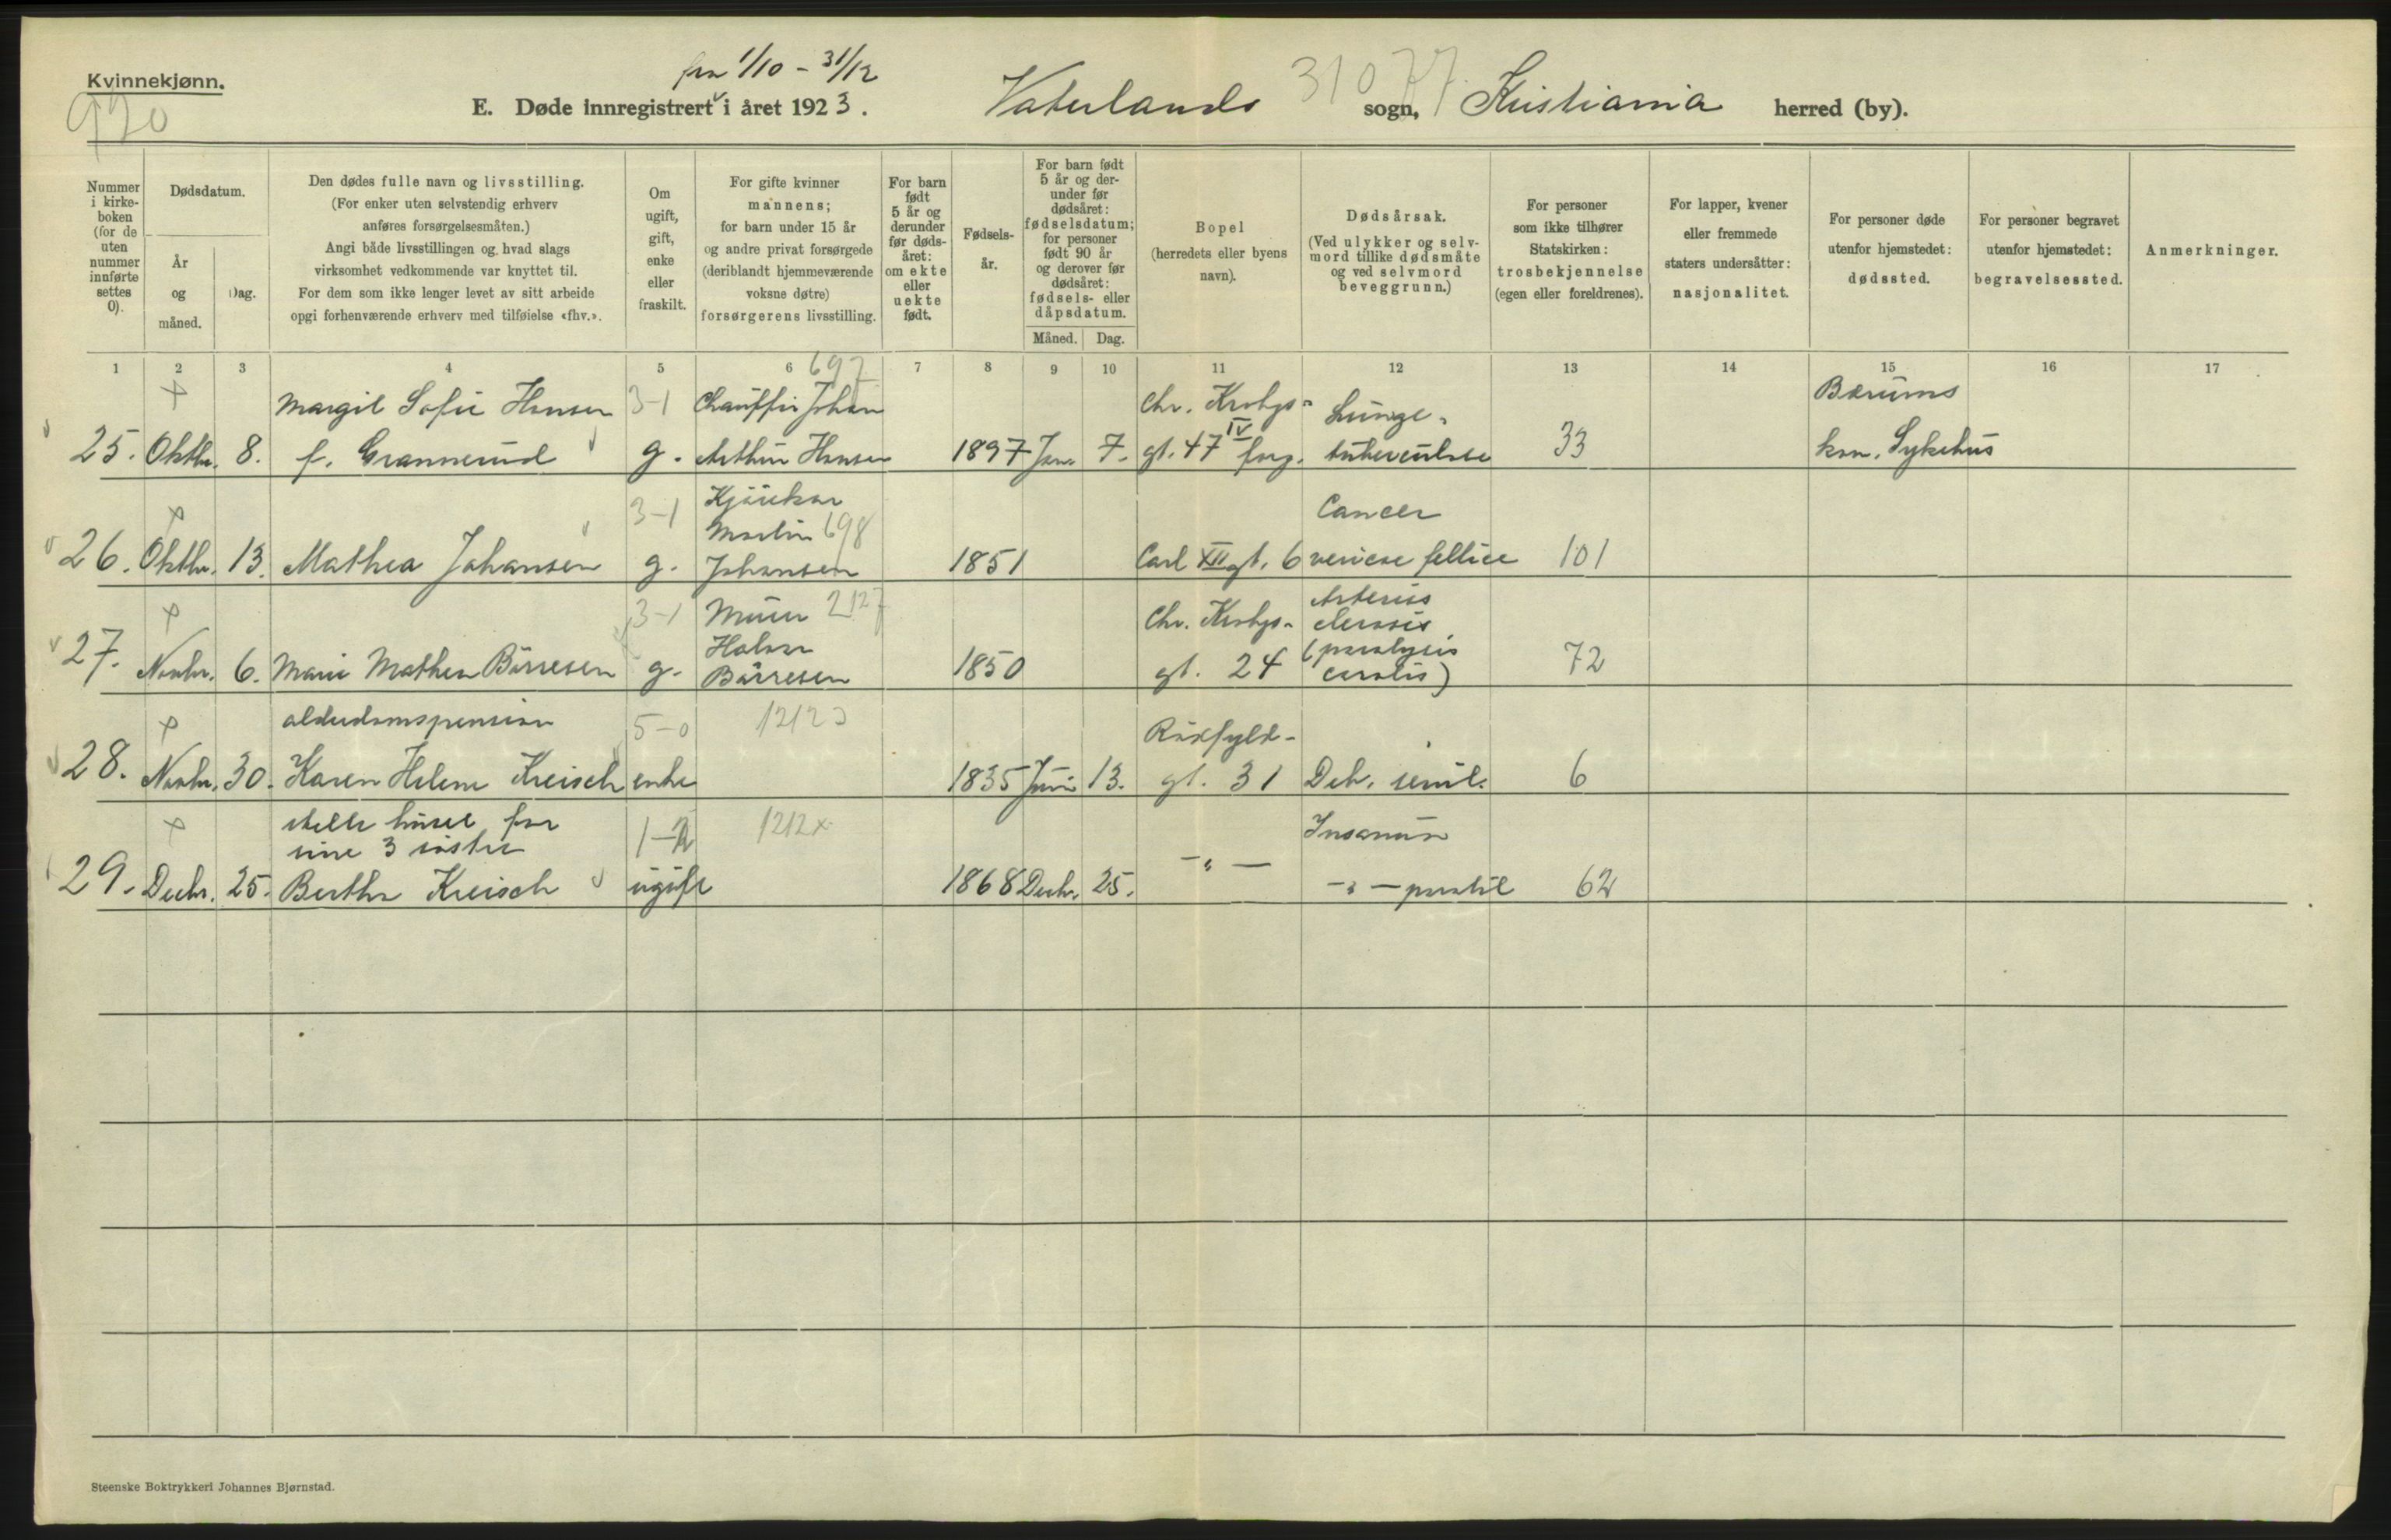 Kvinnekjønn.
920
fra 1/10 - 31/12
E. Døde innregistrert i året 1923. Vaterlands sogn, Kristiania herred (by).
31077
Nummer i kirke- boken (for de uten nummer innførte settes 0).
Dødsdatum.
År og måned.
Dag.
Den dødes fulle navn og livsstilling.
(For enker uten selvstendig erhverv
anføres forsørgelsesmåten.)
Angi både livsstillingen og hvad slags
virksomhet vedkommende var knyttet til.
For dem som ikke lenger levet av sitt arbeide
opgi forhenværende erhverv med tilføielse «fhv.».
Om ugift, gift, enke eller fraskilt.
For gifte kvinner
mannens;
for barn under 15 år
og andre privat forsørgede
(deriblandt hjemmeværende
voksne døtre)
forsørgerens livsstilling.
For barn født 5 år og derunder før døds- året: om ekte eller uekte født.
Fødsels- år.
For barn født 5 år og der- under før dødsåret: fødselsdatum; for personer født 90 år og derover før dødsåret: fødsels- eller dåpsdatum.
Måned. Dag.
Bopel
(herredets eller byens
navn).
Dødsårsak.
(Ved ulykker og selv-
mord tillike dødsmåte
og ved selvmord
beveggrunn.)
For personer
som ikke tilhører
Statskirken:
trosbekjennelse
(egen eller foreldrenes).
For lapper, kvener
eller fremmede
staters undersåtter:
nasjonalitet.
For personer døde
utenfor hjemstedet:
dødssted.
For personer begravet
utenfor hjemstedet:
begravelsessted.
Anmerkninger.
1 2 3 4 5 6 7 8 9 10 11 12 13 14 15 16 17
697
Margit Sofie Hansen 3-1 Chauffør Johan Chr. Krohgs- Lunge- Bærums
25. Oktbr. 8. f. Grannerud g. Arthur Hansen 1897 Jan. 7. gt. 47 IV forg. tuberculose 33 kom. Sykehus
3-1 Kjørekar Cancer
Martin 698
26. Oktbr. 13. Mathea Johansen g. Johansen 1851 Carl XII gt. 6 vesicae felleae 101
3-1 Murer 2127 Arterio
Halvor Chr. Krohgs- sclerosis
27. Novbr. 6. Marie Mathea Børresen g. Børresen 1850 gt. 24 (paralysis cerebris) 72
alderdomspension 5-0 1212 Rødfyld-
28. Novbr. 30. Karen Helene Kreisch enke 1835 Juni 13. gt. 31 Deb. senil. 6
stelte huset for 1-2 1212x
sine 3 søstre
29. Decbr. 25. Bertha Kreisch ugift 1868 Decbr. 25. -"- 62
Steenske Boktrykkeri Johannes Bjørnstad.